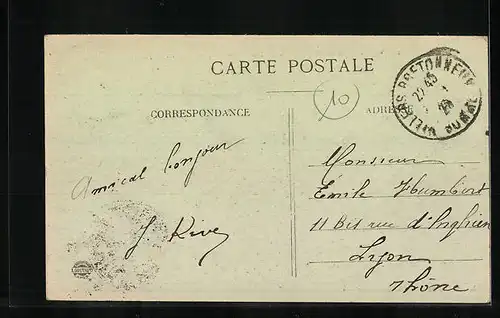 CARTE POSTALE
CORRESPONDANCE
ADRESSE
10
VILLERS-BRETONNEUX
22 45
SOMME
Amical bonjour
J Rive
Monsieur
Emile Humbert
11 Bis rue d'Inghien
Lyon
Rhône